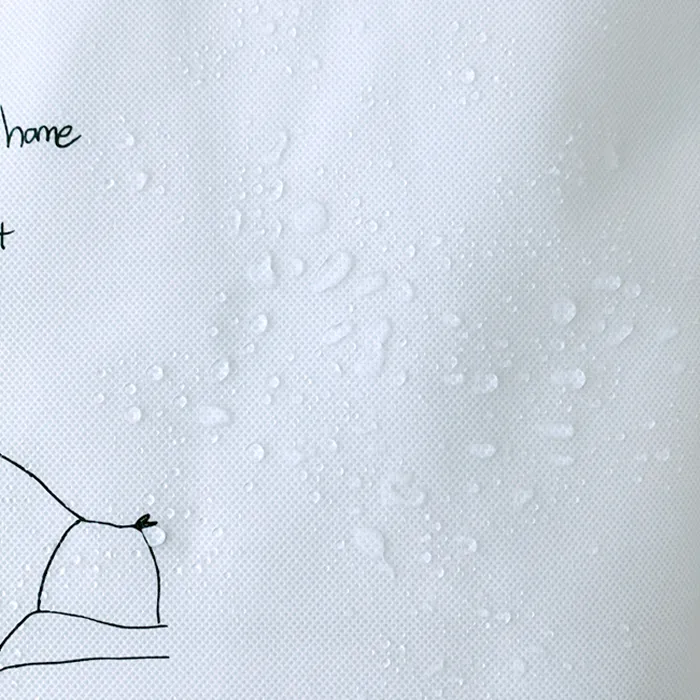 home
t